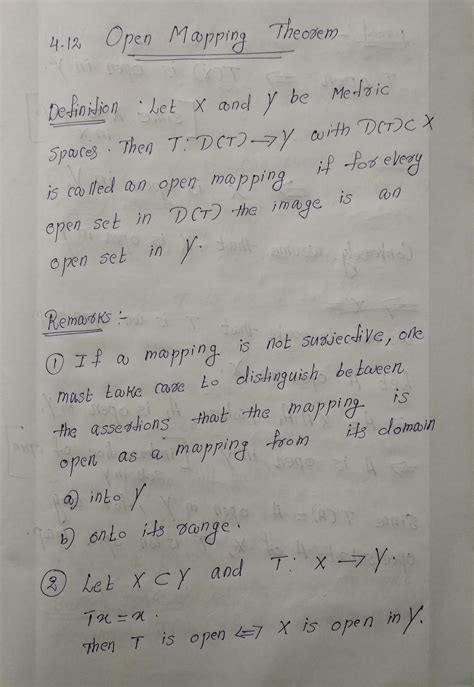 4.12 Open Mapping Theorem
Definition : Let X and Y be Metric
Spaces. Then T: D(T) → Y with D(T) ⊂ X
is called an open mapping if for every
open set in D(T) the image is an
open set in Y.
Remarks :-
① If a mapping is not surjective, one
must take care to distinguish between
the assertions that the mapping is
open as a mapping from its domain
a) into Y
b) onto its range.
② Let X ⊂ Y and T: X → Y.
Tx = x.
Then T is open ⟺ X is open in Y.